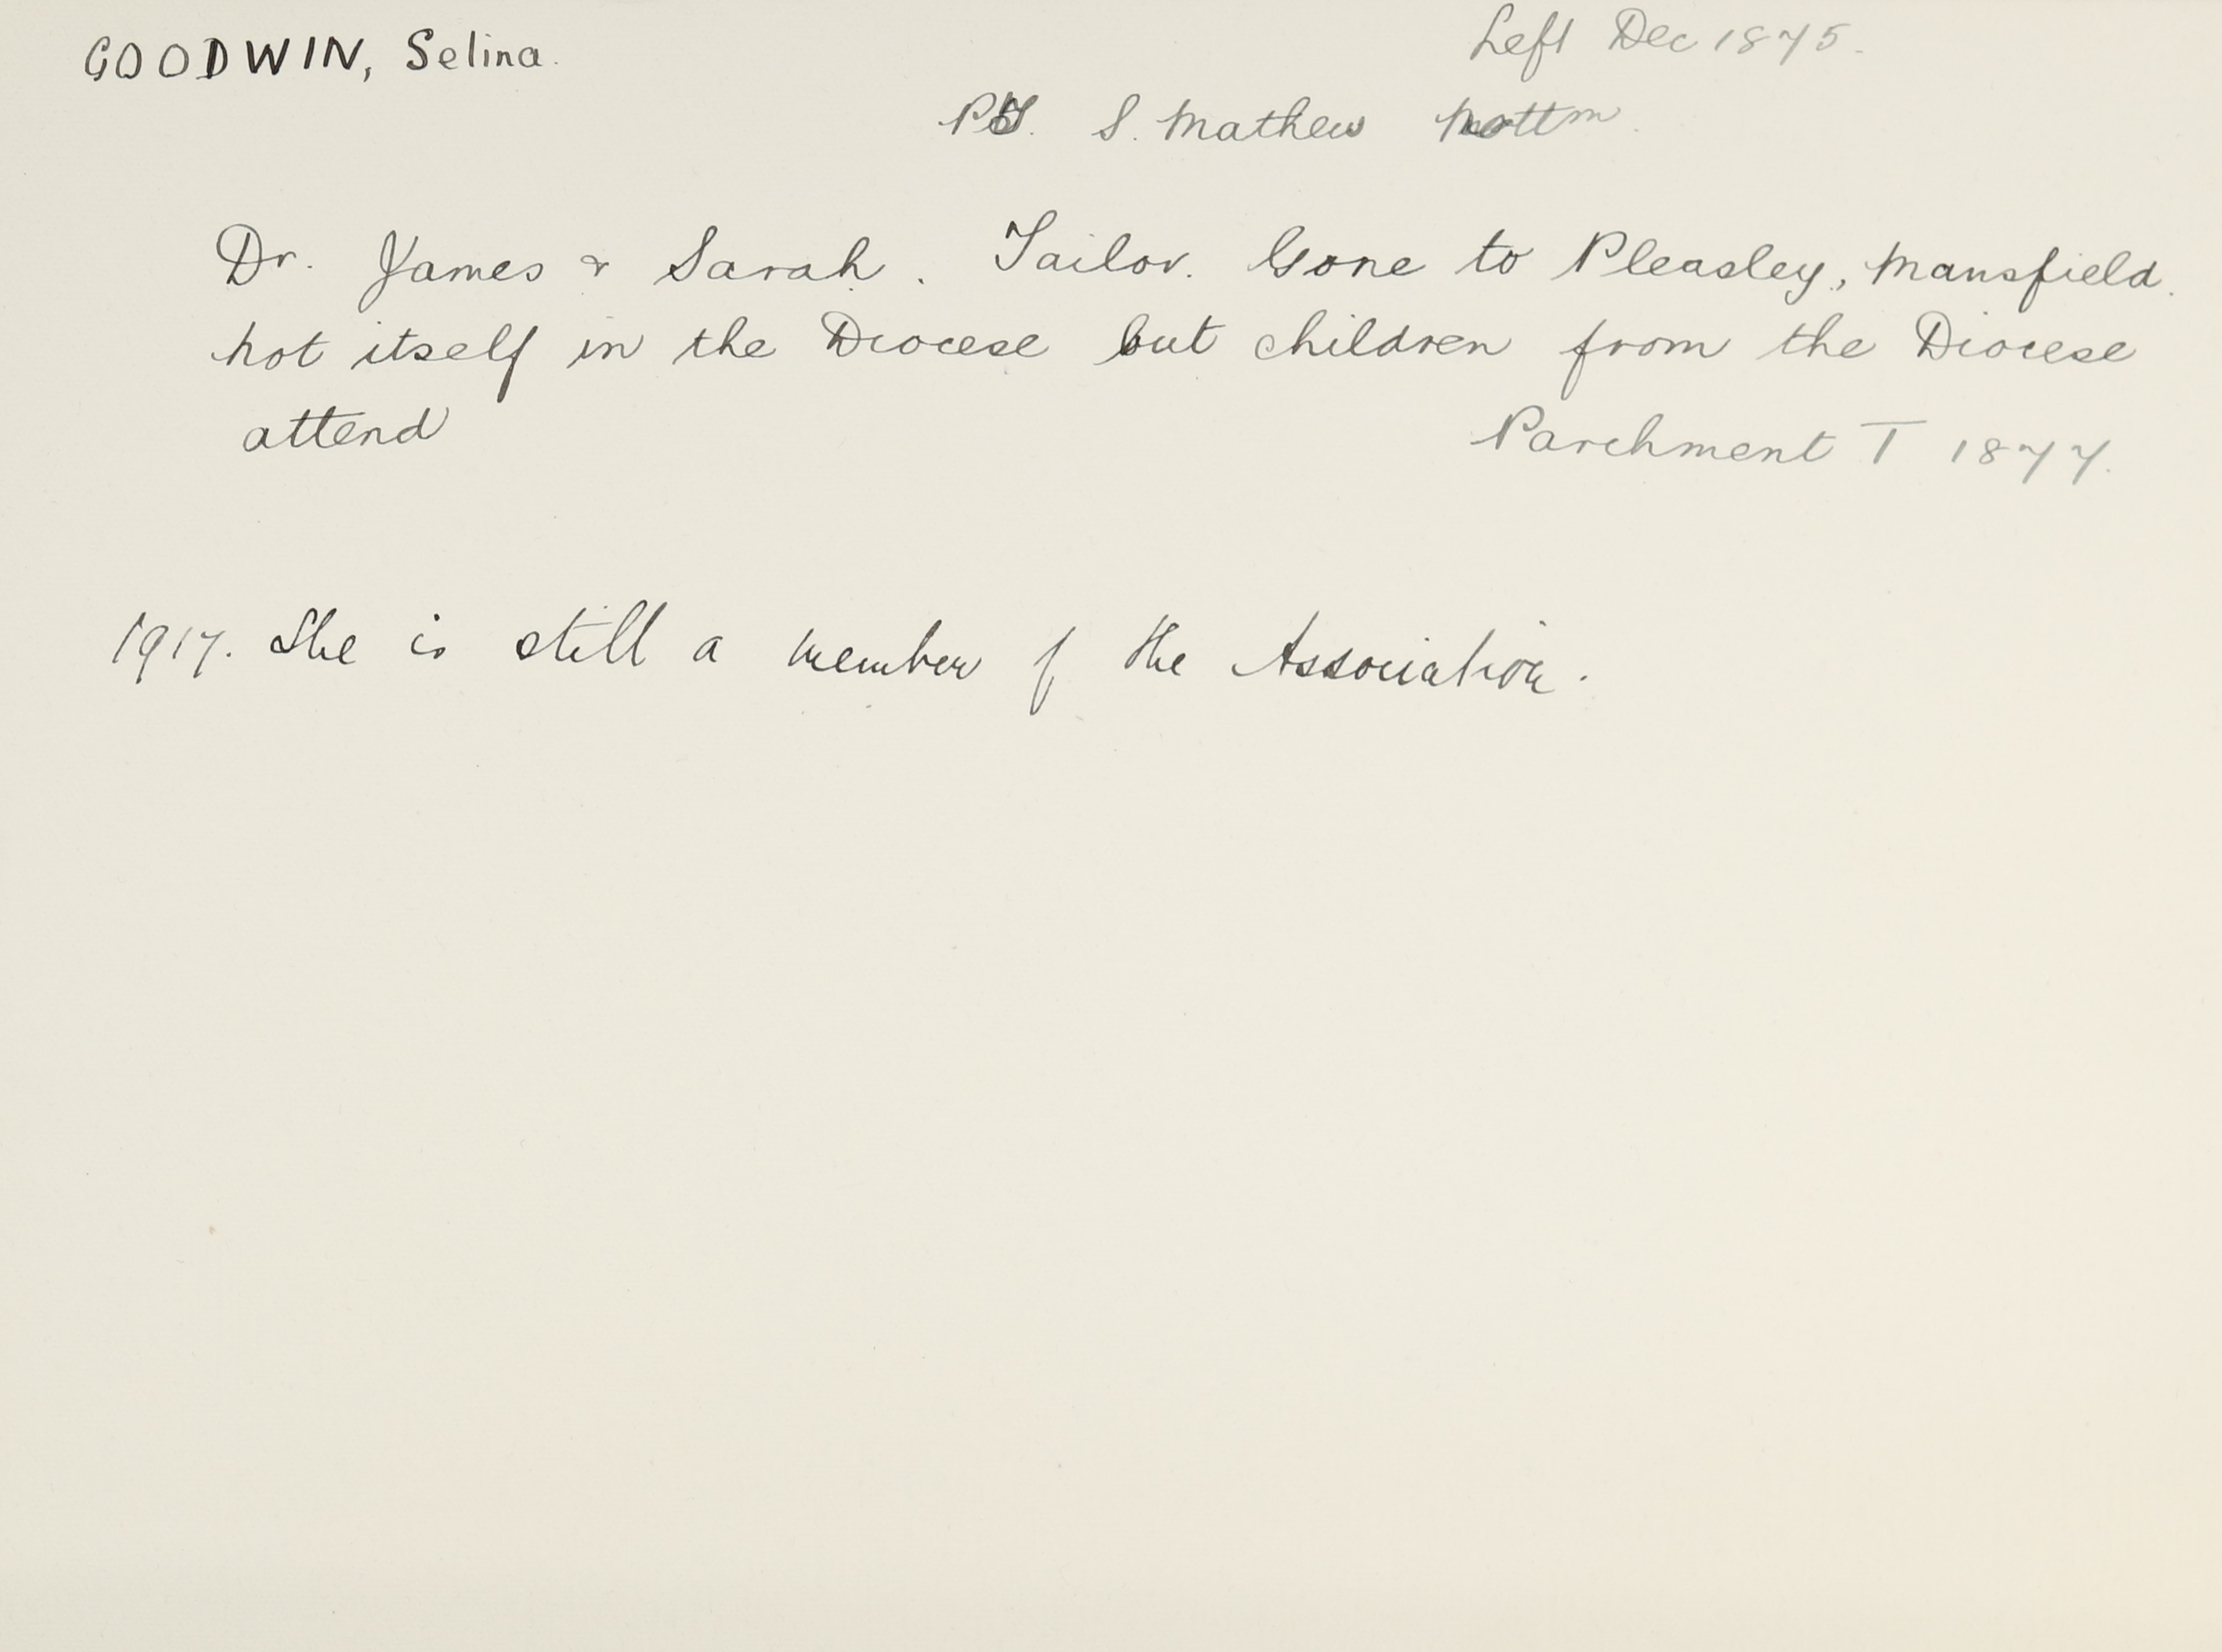 GOODWIN, Selina.
Left Dec 1875.
S. Mathew Nottm.
Dr. James & Sarah. Tailor. Gone to Pleasley, Mansfield.
not itself in the Diocese but children from the Diocese
attend
Parchment T 1877.
1917. She is still a member of the Association.